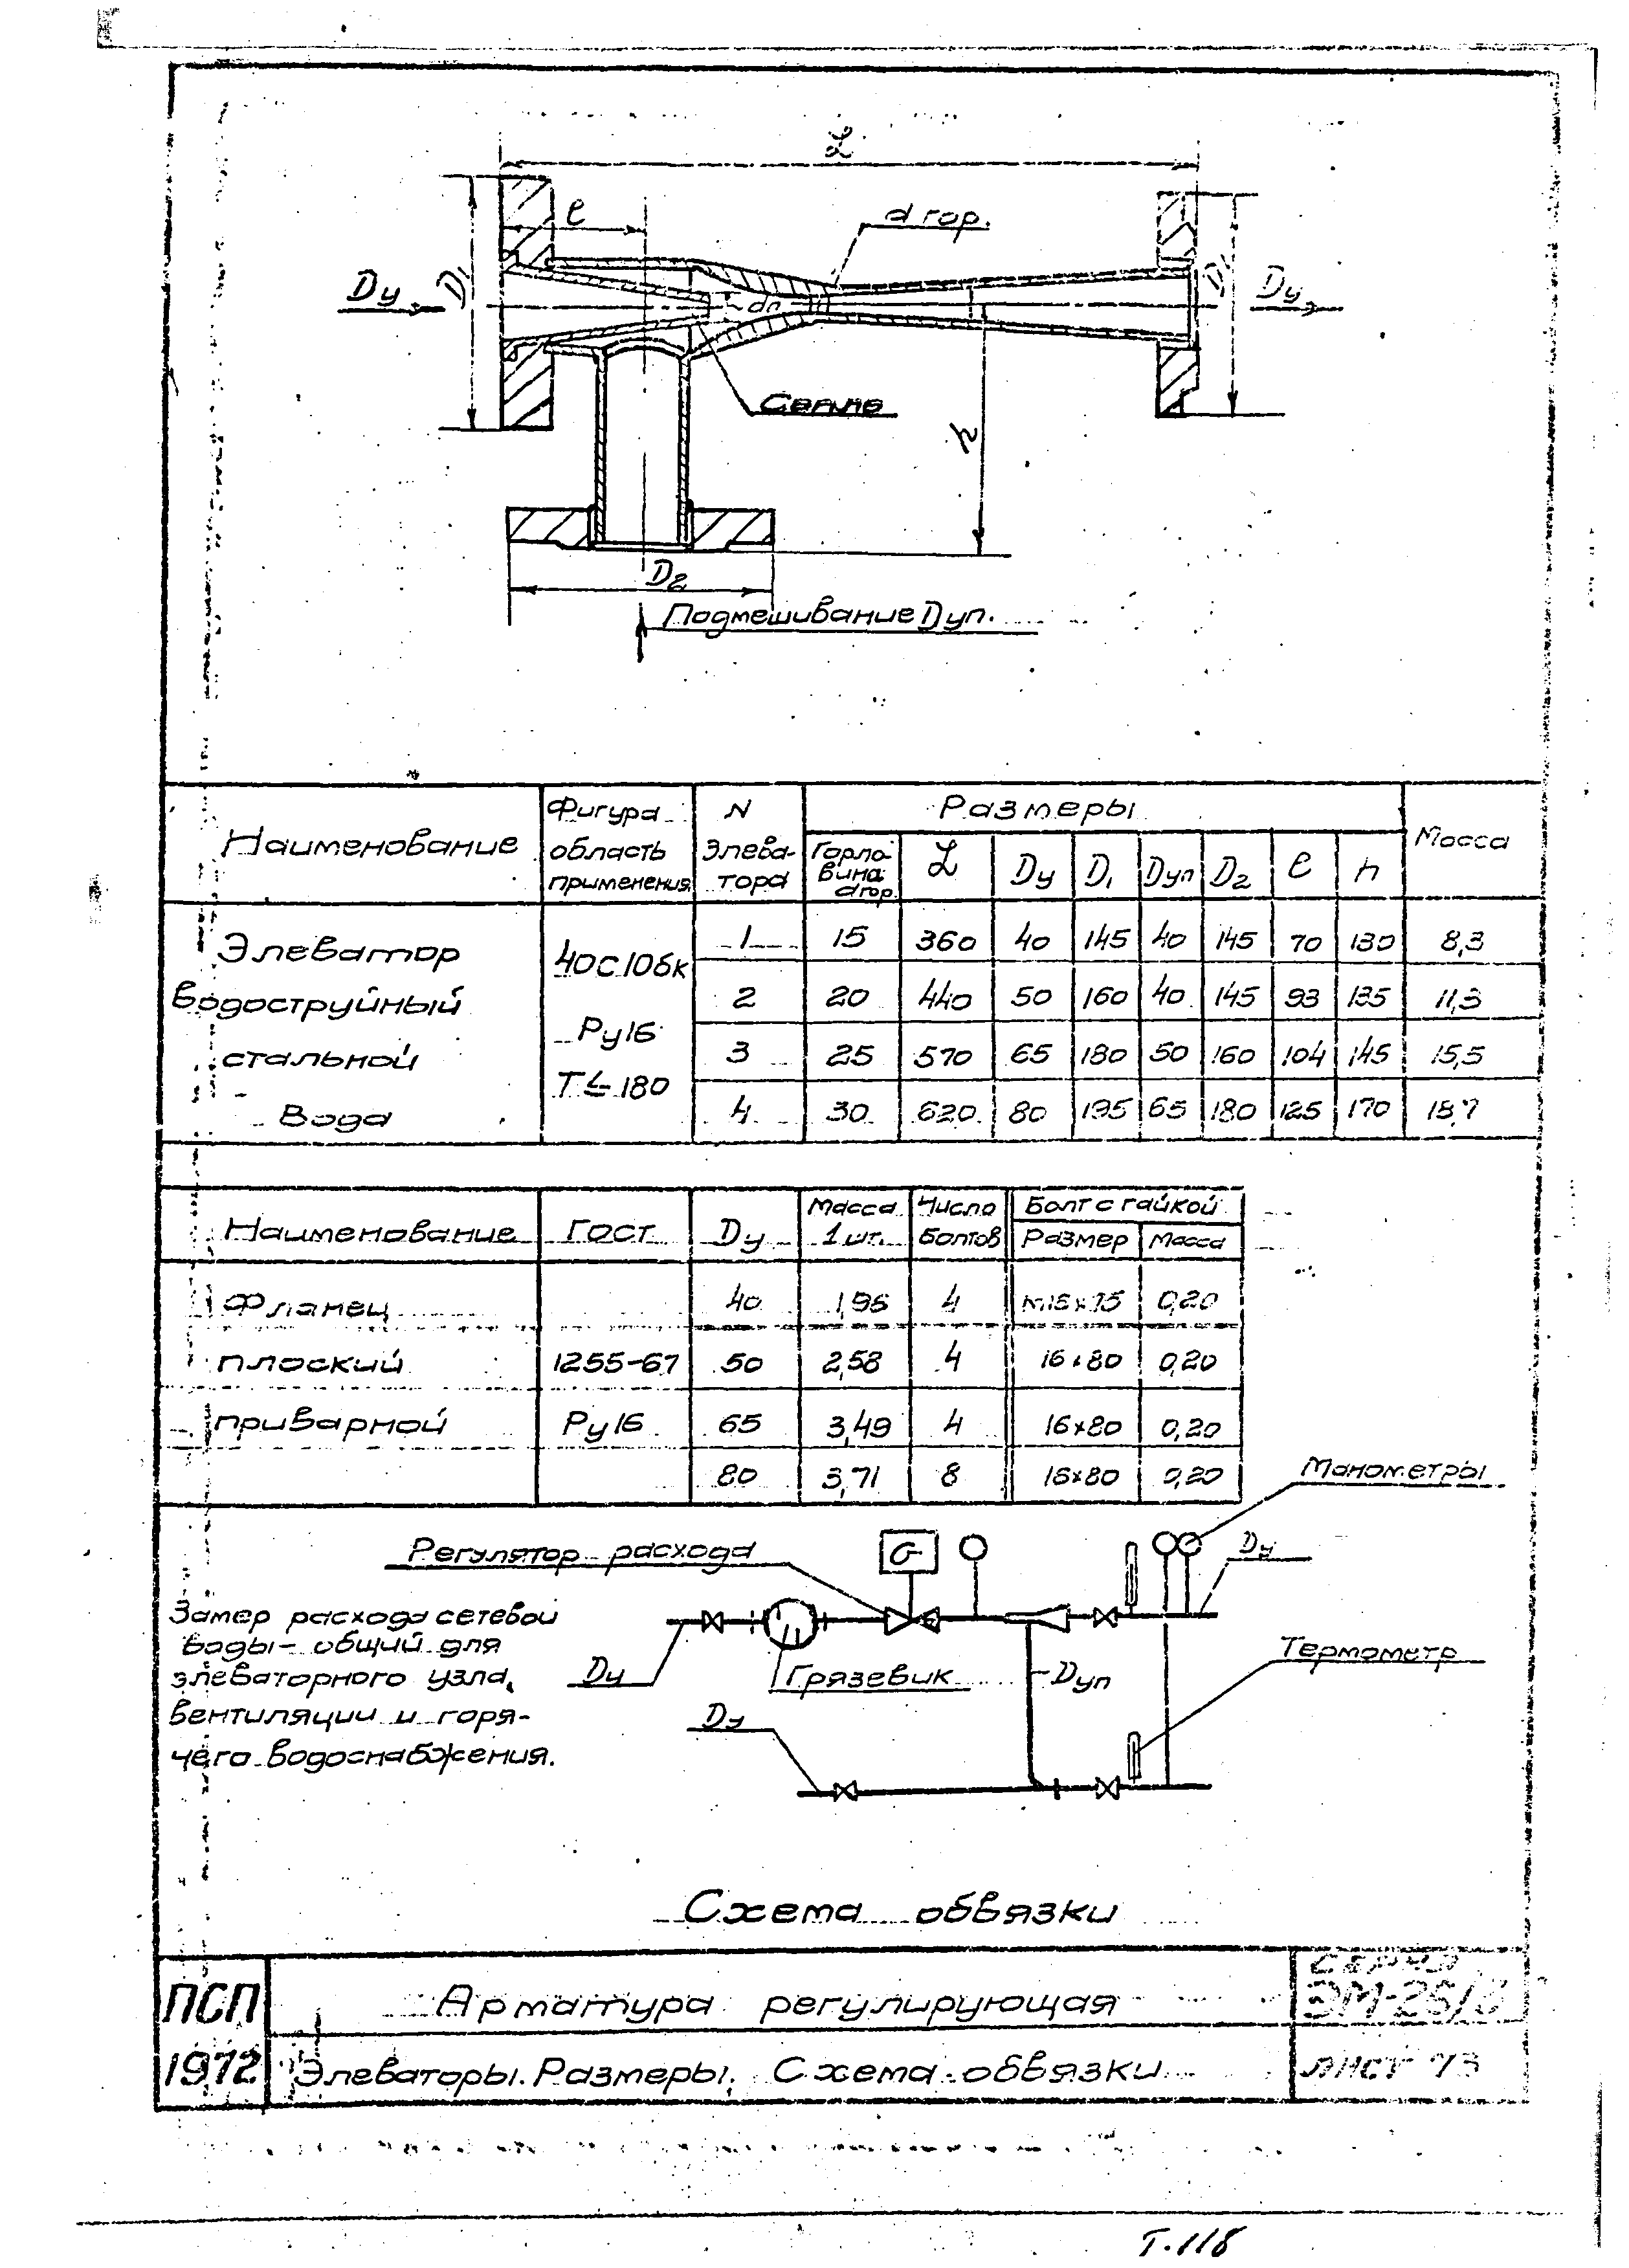 L
e
d гор.
Dу
D1
dп
D1
Dу
Сопло
h
D2
Подмешивание Dуп.
Наименование | Фигура область применения | N Элеватора | Размеры | Масса
Горловина dгор. | L | Dу | D1 | Dуп | D2 | e | h
Элеватор водоструйный стальной Вода | 40С10бк Ру16 Т ≤ 180
1 | 15 | 360 | 40 | 145 | 40 | 145 | 70 | 130 | 8,3
2 | 20 | 440 | 50 | 160 | 40 | 145 | 93 | 135 | 11,3
3 | 25 | 570 | 65 | 180 | 50 | 160 | 104 | 145 | 15,5
4 | 30 | 620 | 80 | 195 | 65 | 180 | 125 | 170 |
Наименование | ГОСТ | Dу | Масса 1 шт. | Число болтов | Болт с гайкой
Размер | Масса
Фланец | 40 | 4 | 0,20
плоский | 1255-67 | 50 | 2,58 | 4 | 16×80 | 0,20
приварной | Ру16 | 65 | 3,49 | 4 | 16×80 | 0,20
80 | 3,71 | 8 | 16×80 | 0,20
Манометры
Регулятор расхода
G
Dу
Замер расхода сетевой
воды - общий для
элеваторного узла,
вентиляции и горя-
чего водоснабжения.
Dу
Грязевик
Dуп
Термометр
Dу
Схема обвязки
ПСП
Арматура регулирующая
Серия
1972
Элеваторы. Размеры. Схема обвязки
Лист 73
Т.118